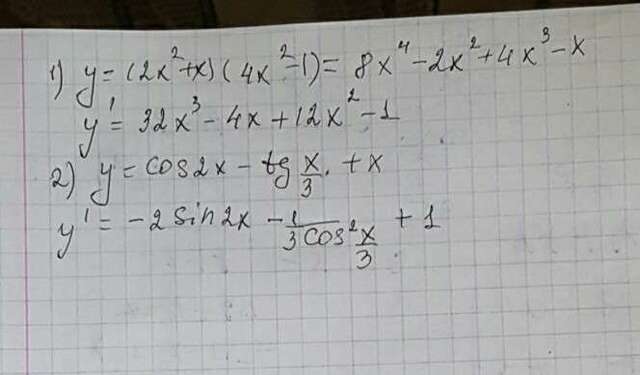 1) y = (2x²+x)(4x²-1) = 8x⁴-2x²+4x³-x
y' = 32x³-4x+12x²-1
2) y = cos2x - tg x/3 . + x
y' = -2 sin2x - 1/(3cos² x/3) + 1